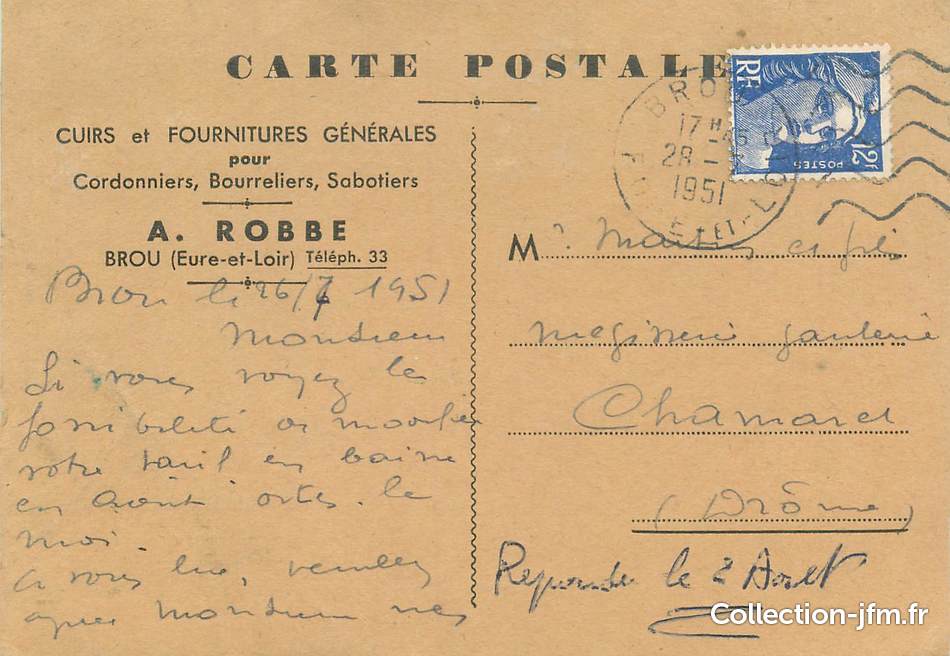 CARTE POSTALE
RF
POSTES
12F
BROU
17H45
28 - 
1951
EURE-ET-LOIR
CUIRS et FOURNITURES GÉNÉRALES
pour
Cordonniers, Bourreliers, Sabotiers
A. ROBBE
BROU (Eure-et-Loir) Téléph. 33
Brou le 26/7 1951
Monsieur
Si vous voyez les
possibilité de modifier
votre tarif en baisse
en août dites le
moi
a vous lire, veuillez
agréer Monsieur mes
M r. et fils
megisserie ganterie
Chamaret
(Drôme)
Repondu le 2 Aout
Collection-jfm.fr